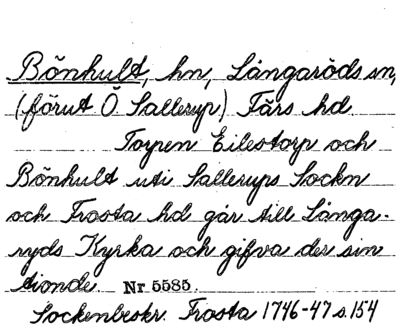 Bönhult, hn, Långaröds sn,
(förut Ö. Sallerup) Färs hd.
Torpen Eilestorp och
Bönhult uti Sallerups Sockn
och Frosta hd går till Långa-
ryds Kyrka och gifva der sin
tionde. Nr. 5585.
Sockenbeskr. Frosta 1746-47 s. 154